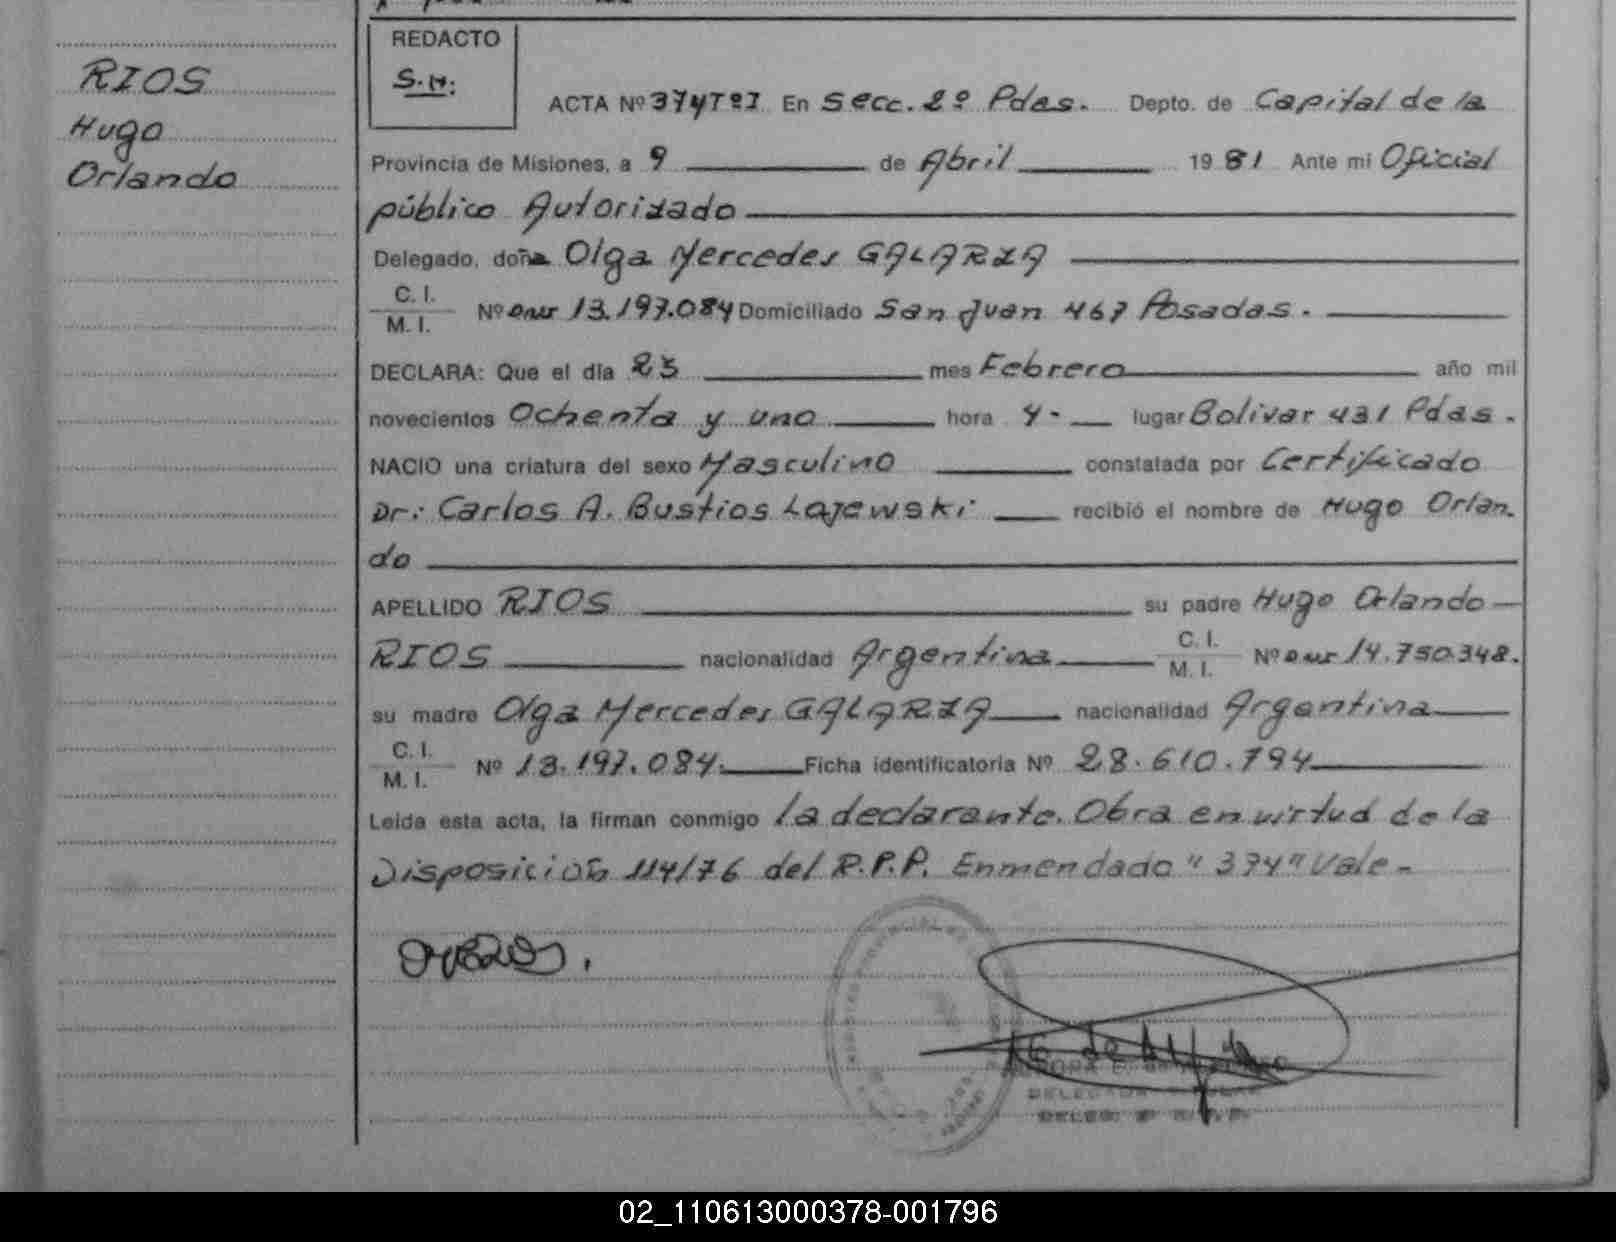 RIOS
Hugo
Orlando
REDACTO
S.H:
ACTA Nº 374 Tº I En Secc. 2º Pdas. Depto. de Capital de la
Provincia de Misiones, a 9 de Abril 19 81 Ante mi Oficial
público Autorizado
Delegado, doña Olga Mercedes GALARZA
C. I.
M. I. Nº DNI 13.197.084 Domiciliado San Juan 467 Posadas.
DECLARA: Que el día 23 mes Febrero año mil
novecientos Ochenta y uno hora 4- lugar Bolivar 431 Pdas.
NACIO una criatura del sexo Masculino constatada por Certificado
Dr: Carlos A. Bustios Lajewski recibió el nombre de Hugo Orlan-
do
APELLIDO RIOS su padre Hugo Orlando
RIOS nacionalidad Argentina C. I.
M. I. Nº DNI 14.750.348.
su madre Olga Mercedes GALARZA nacionalidad Argentina
C. I.
M. I. Nº 13.197.084. Ficha identificatoria Nº 28.610.794
Leída esta acta, la firman conmigo la declarante. Obra en virtud de la
Disposición 114/76 del R.P.P. Enmendado "374" Vale-
DELEGADA TITULAR
DELEG. 2ª R.P.P.
02_110613000378-001796